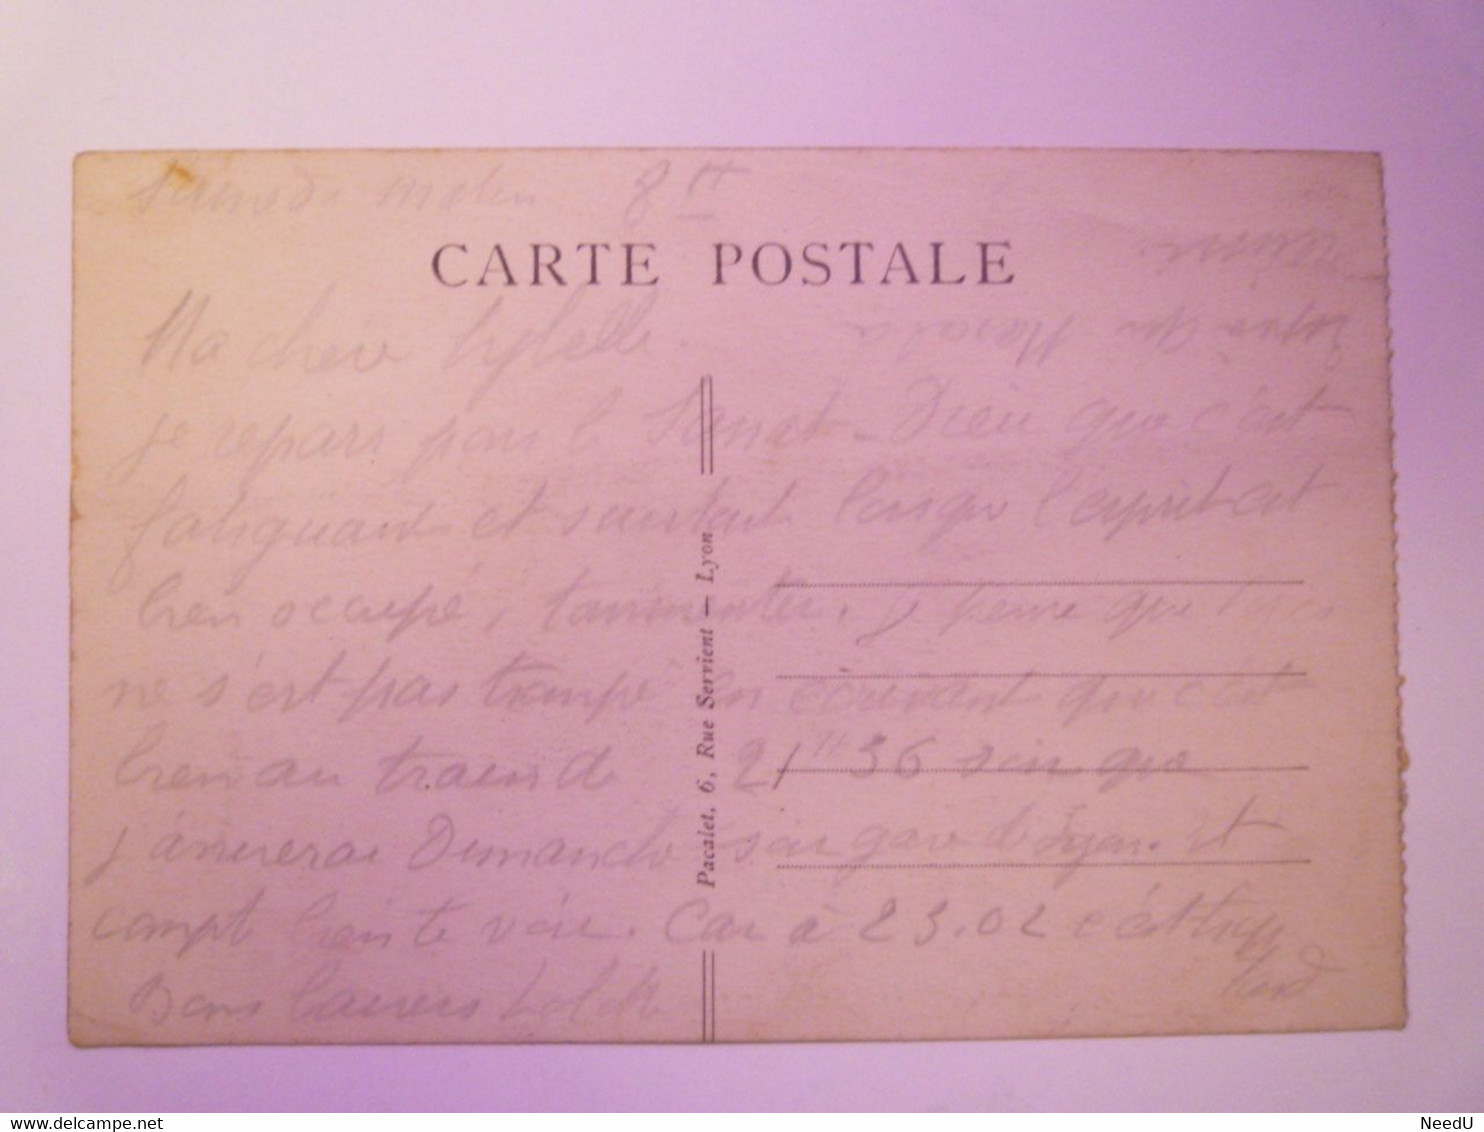 matin 8 H
CARTE POSTALE
Ma chère
je repars pour le Dieu que c'est
fatiguant et surtout lorsque l'esprit est
bien occupé, je pense que
ne s'est pas trompé en écrivant que c'est
bien au train de 21 H 36 soir que
j'arriverai Dimanche soir gare de Lyon. Et
compte bien te voir. Car à 23.02 c'est trop
tard
Bons baisers
Pacalet, 6, Rue Servient — Lyon
www.delcampe.net
NeedU